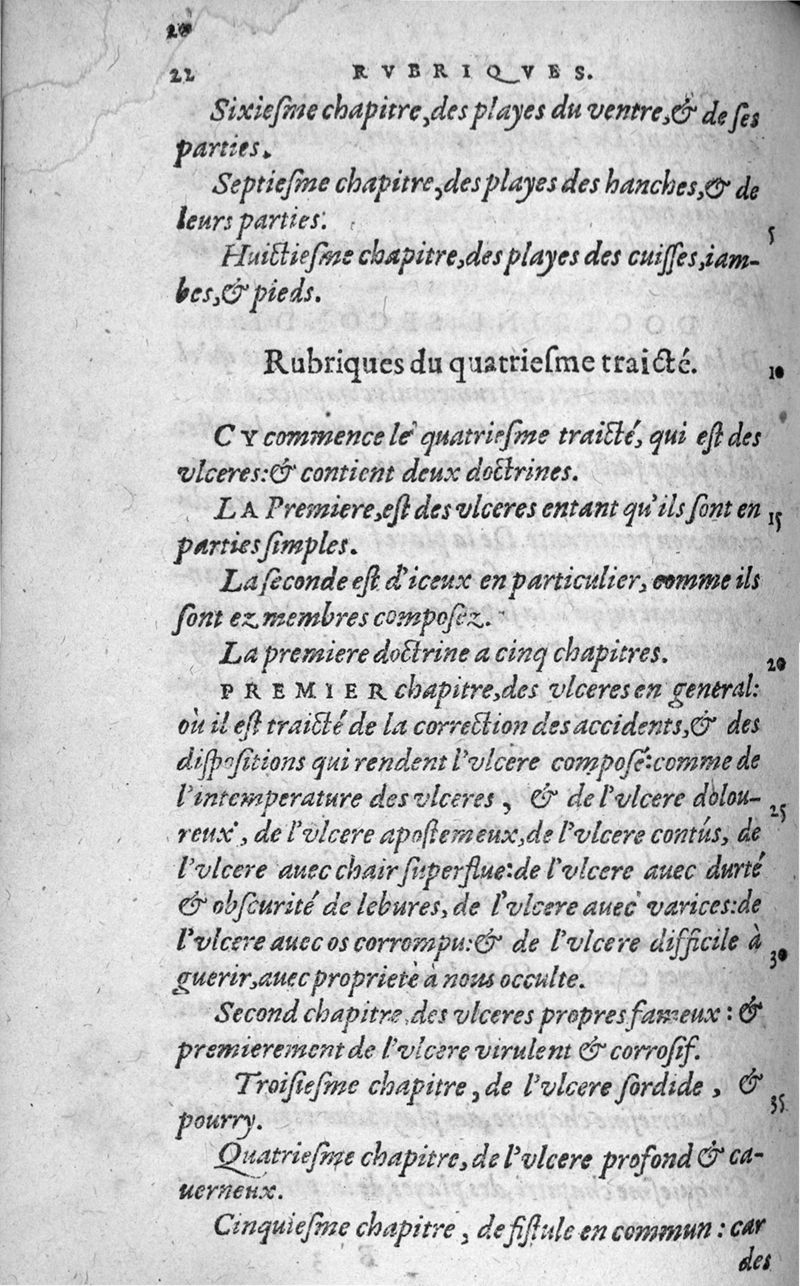 20
22 RVBRIQVES.
Sixieſme chapitre, des playes du ventre, & de ſes
parties.
Septieſme chapitre, des playes des hanches, & de
leurs parties.
5
Huictieſme chapitre, des playes des cuiſſes, iam-
bes, & pieds.
Rubriques du quatrieſme traicté.
10
CY commence le quatrieſme traicté, qui eſt des
vlceres: & contient deux doctrines.
LA Premiere, eſt des vlceres entant qu'ils ſont en
15
parties ſimples.
La ſeconde eſt d'iceux en particulier, comme ils
ſont ez membres compoſez.
La premiere doctrine a cinq chapitres.
20
PREMIER chapitre, des vlceres en general:
où il eſt traicté de la correction des accidents, & des
diſpoſitions qui rendent l'vlcere compoſé: comme de
l'intemperature des vlceres, & de l'vlcere dolou-
25
reux, de l'vlcere apoſtemeux, de l'vlcere contus, de
l'vlcere auec chair ſuperflue: de l'vlcere auec durté
& obſcurité de lebures, de l'vlcere auec varices: de
l'vlcere auec os corrompu: & de l'vlcere difficile à
30
guerir, auec proprietè à nous occulte.
Second chapitre, des vlceres propres fameux: &
premierement de l'vlcere virulent & corroſif.
Troiſieſme chapitre, de l'vlcere ſordide, &
35
pourry.
Quatrieſme chapitre, de l'vlcere profond & ca-
uerneux.
Cinquieſme chapitre, de fiſtule en commun: car
des